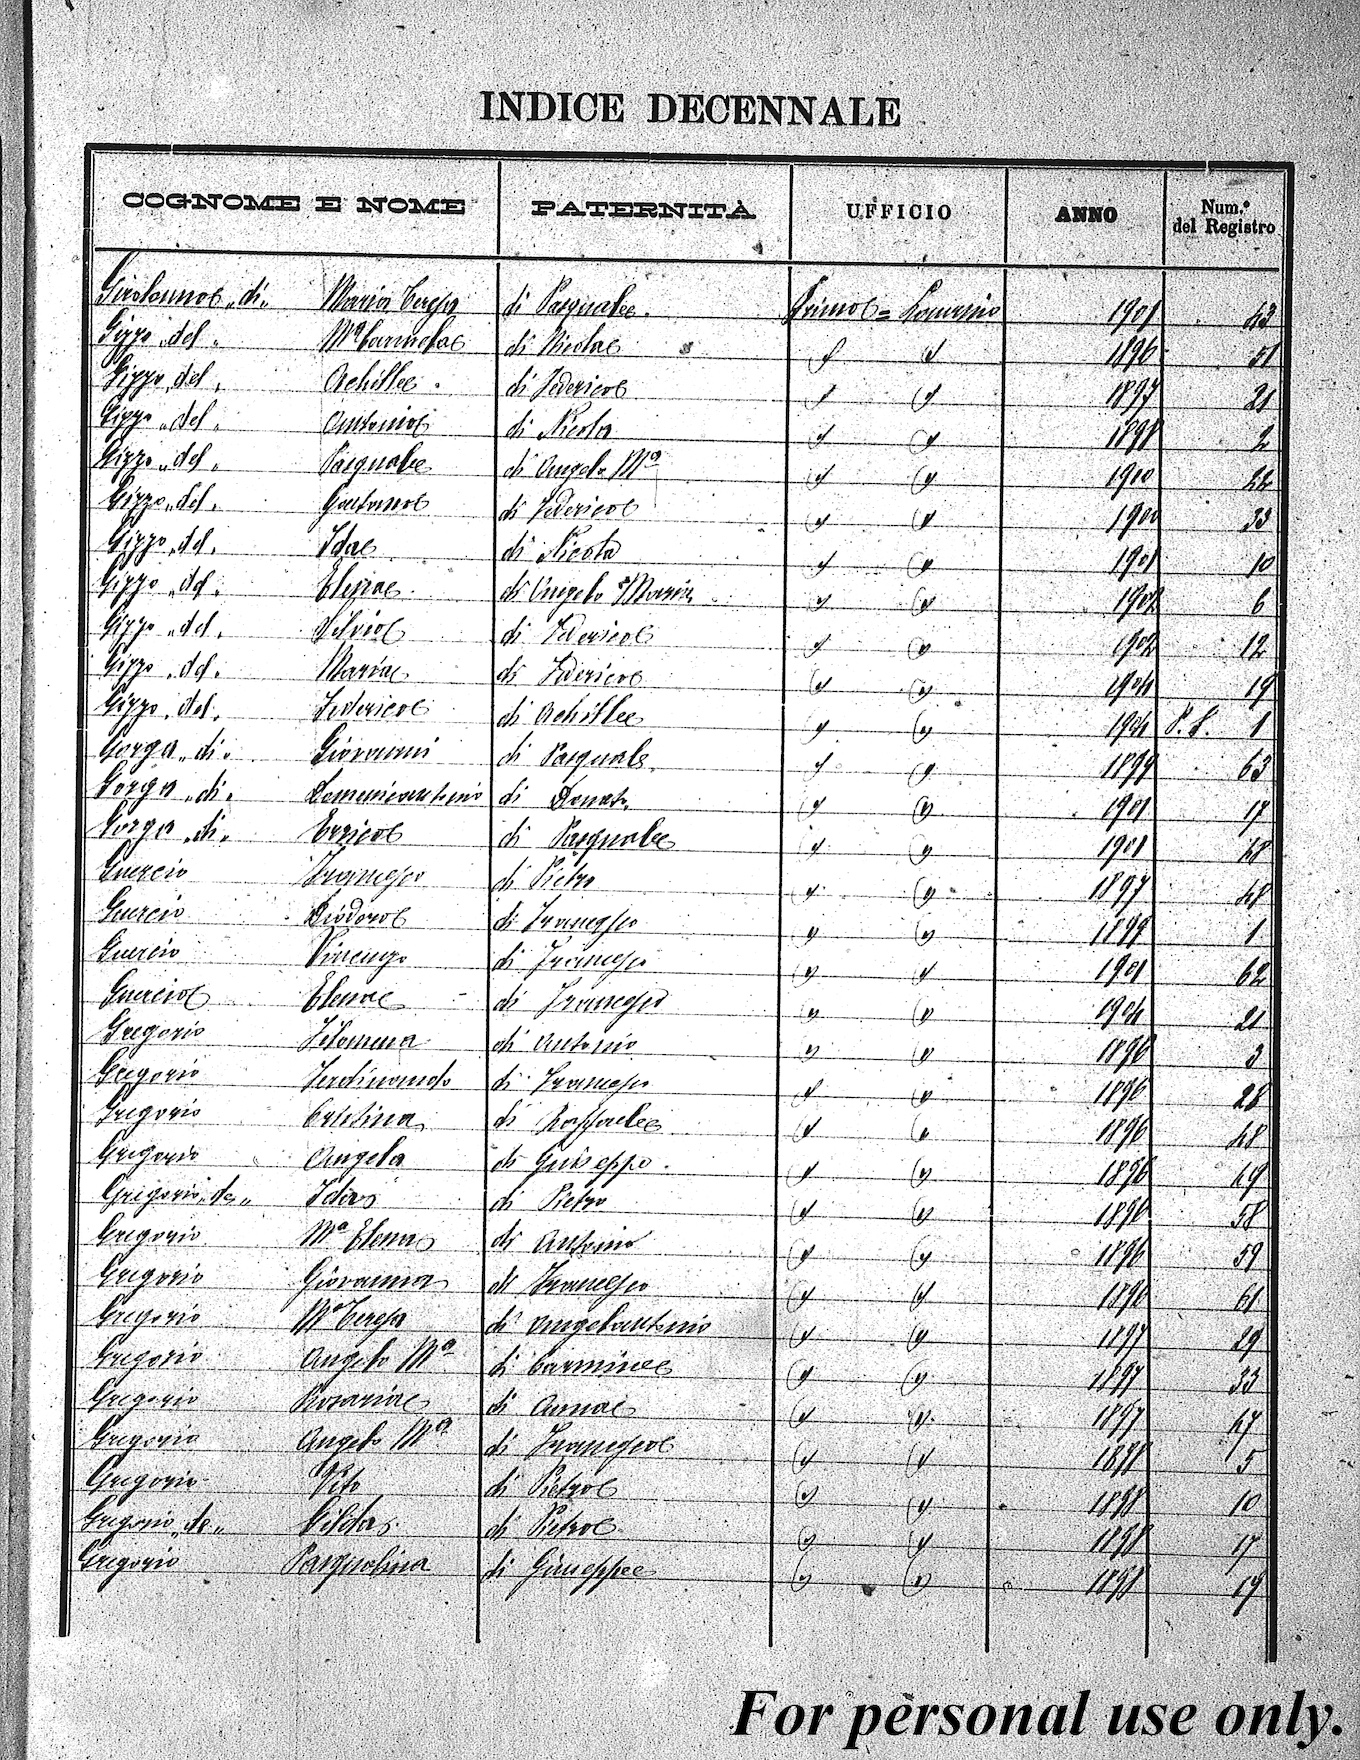 INDICE DECENNALE
COGNOME E NOME PATERNITÀ UFFICIO ANNO Num.º del Registro
Girolamo „di„ Maria Teresa di Pasquale Primo = 1901 43
Gizzo „del„ Mª Carmela di Nicola 1896 51
Gizzo „del„ Achille di Federico 1897 21
Gizzo „del„ Antonio di Nicola 1898 2
Gizzo „del„ Pasquale di Angelo Mª 1900 22
Gizzo „del„ Gaetano di Federico 1900 33
Gizzo „del„ Ida di Nicola 1901 10
Gizzo „del„ Elena di Angelo Maria 1902 6
Gizzo „del„ Silvio di Federico 1902 12
Gizzo „del„ Maria di Federico 1904 19
Gizzo „del„ Federico di Achille 1904 1
Gorga „di„ Giovanni di Pasquale 1899 63
Gorga „di„ Domenicantonio di Donato 1901 17
Gorga „di„ Errico di Pasquale 1901 48
Guercio Francesco di Pietro 1897 48
Guercio Diodoro di Francesco 1899 1
Guercio Vincenzo di Francesco 1901 62
Guercio Elena di Francesco 1904 21
Gregorio Filomena di Antonio 1896 3
Gregorio Ferdinando di Francesco 1896 28
Gregorio Cristina di Raffaele 1896 48
Gregorio Angela di Guiseppe 1896 49
Gregorio „de„ Ida di Pietro 1896 58
Gregorio Mª Elena di Antonio 1896 59
Gregorio Giovanna di Francesco 1896 61
Gregorio Mª Teresa di Angelantonio 1897 29
Gregorio Angelo Mª di Carmine 1897 33
Gregorio Rosaria di 1897 47
Gregorio Angelo Mª di Francesco 1898 5
Gregorio Vito di Pietro 1898 10
Gregorio „de„ Gilda di Pietro 1898 17
Gregorio Pasqualina di Giuseppe 1898 19
For personal use only.